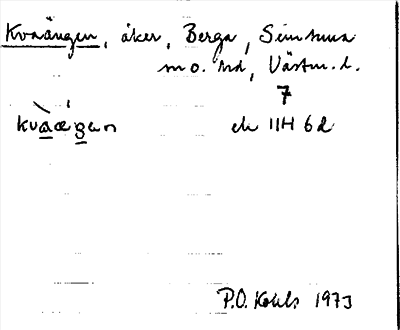 Kvaängen, åker, Berga, Simtuna
sn o. hd, Västm. l.
7
kvàægan ek 11H 6d
P.O. Kohls 1973